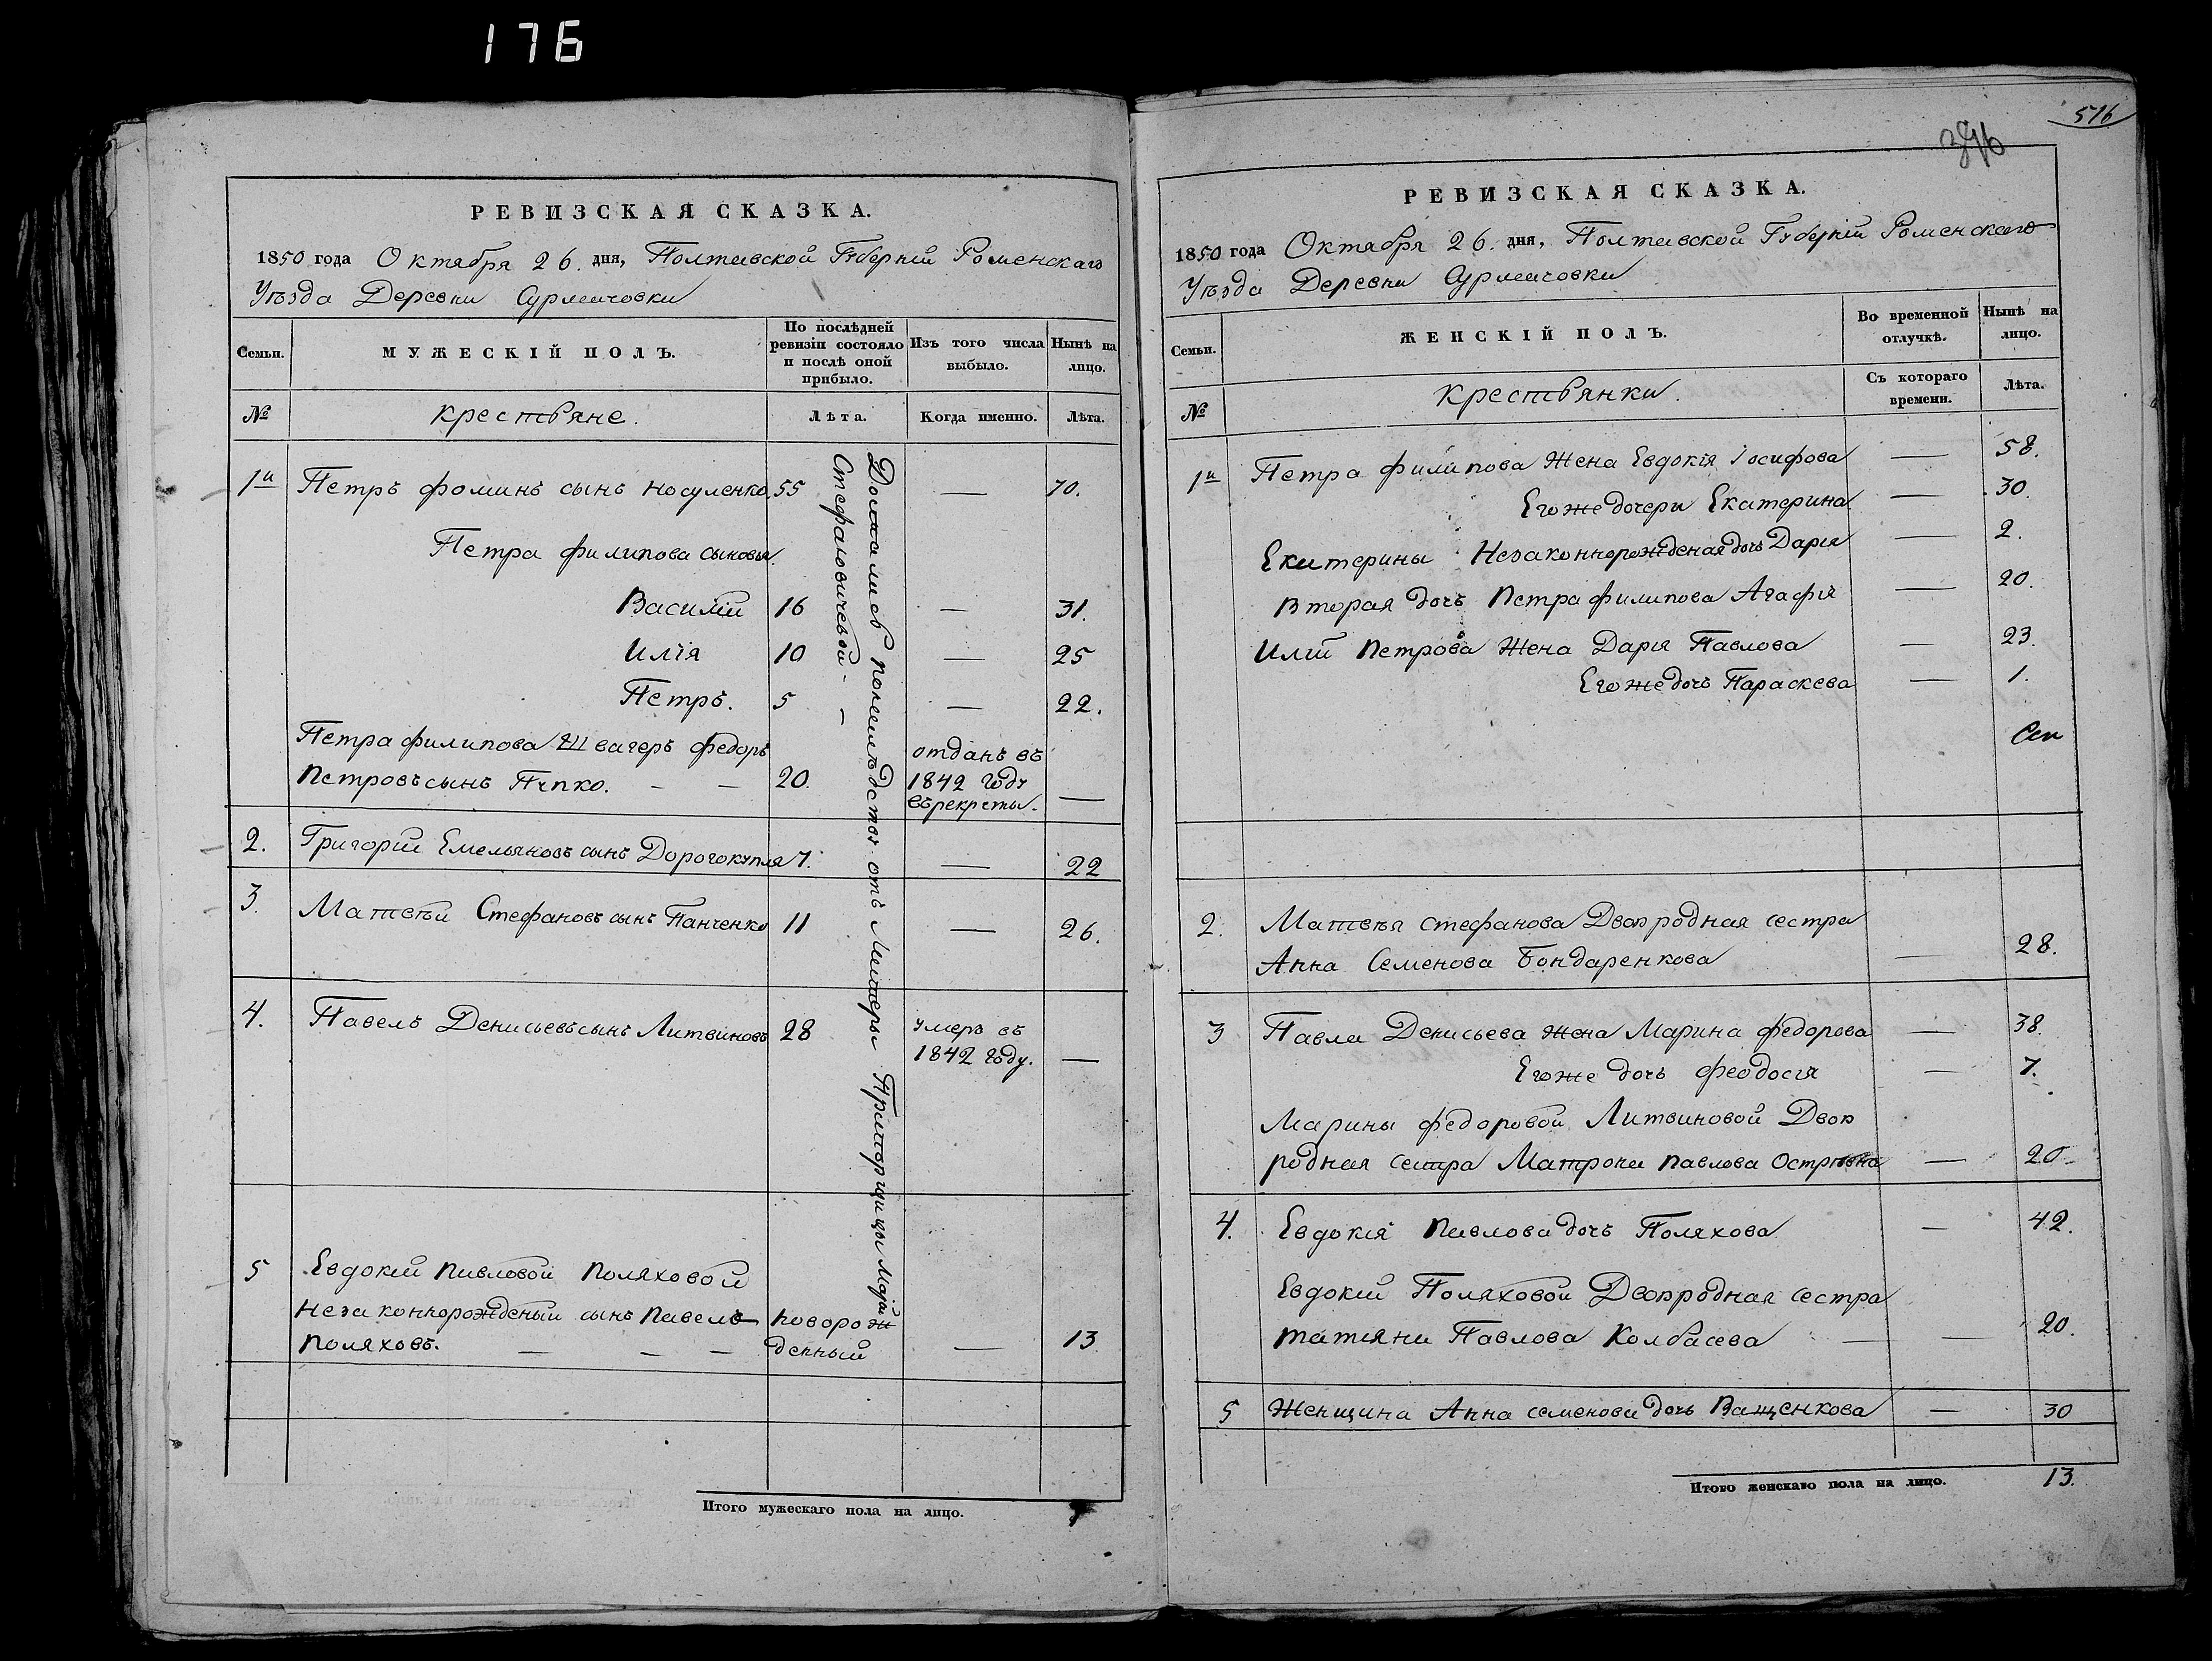 176
РЕВИЗСКАЯ СКАЗКА.
1850 года Октября 26. дня, Полтавской Губерніи Роменскаго
Уѣзда Деревни Сурмачовки
Семьи.
МУЖЕСКІЙ ПОЛЪ.
По послѣдней ревизіи состояло и послѣ оной прибыло.
Изъ того числа выбыло.
Нынѣ на лицо.
№
крестьяне.
Лѣта.
Когда именно.
Лѣта.
1й Петръ фоминъ сынъ Носуленко 55 — 70.
Петра филипова сыновья.
Василій 16 — 31.
Илія 10 — 25
Петръ. 5 — 22.
Петра филипова Швагеръ федоръ отданъ въ
Петровъ сынъ Пупко. — — 20. 1842 году —
въ рекруты.
2. Григорій Емельяновъ сынъ Дорогокупля 7. — 22
3. Матвѣй Стефановъ сынъ Панченко 11 — 26.
4. Павелъ Денисьевъ сынъ Литвиновъ 28 умеръ въ
1842 году. —
5 Евдокіи Павловой Поляховой
незаконнорожденый сынъ Павелъ новорож
Поляховъ. — — — денный — 13
Достались по наслѣдству отъ Матери Прапорщицы Маріи
Стефановичевой — —
Итого мужескаго пола на лицо.
516
РЕВИЗСКАЯ СКАЗКА.
1850 года Октября 26. дня, Полтавской Губерніи Роменскаго
Уѣзда Деревни Сурмачовки
Семьи.
ЖЕНСКІЙ ПОЛЪ.
Во временной отлучкѣ.
Нынѣ на лицо.
№
крестьянки.
Съ котораго времени.
Лѣта.
1й Петра филипова Жена Евдокія Іосифова — 58.
Его же дочери Екатерина — 30.
Екатерины Незаконнорожденая дочь Дарія — 2.
Вторая дочь Петра филипова Агафія — 20.
Иліи Петрова Жена Дарія Павлова — 23.
Его же дочь Параскева — 1.
2. Матвѣя Стефанова Двоюродная сестра
Анна Семенова Бондаренкова — 28.
3 Павла Денисьева жена Марина федорова — 38.
Его же дочь Феодосія — 7.
Марины федоровой Литвиновой Двою
родная сестра Матрона Павлова — 20
4. Евдокія Павлова дочь Поляхова — 42.
Евдокіи Поляховой Двоюродная сестра
татіяна Павлова Колбасева — — 20.
5 Женщина Анна семенова дочь Ващенкова — 30
Итого женскаго пола на лицо. 13.